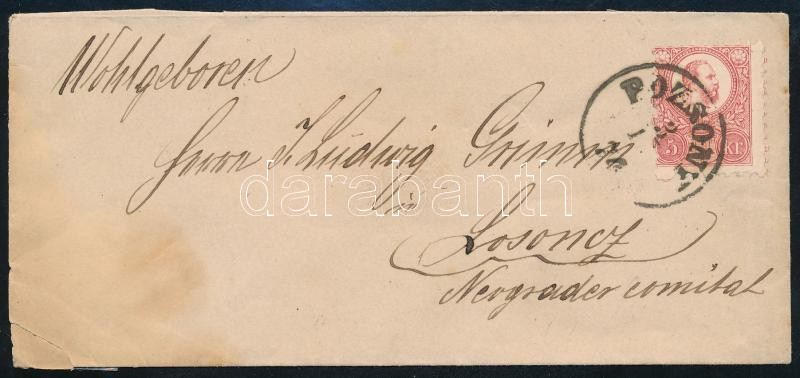 Wohlgeboren
Herrn J. Ludwig Grimm
in
Losoncz
Neograder comitat
POZSONY
5 KR
darabanth